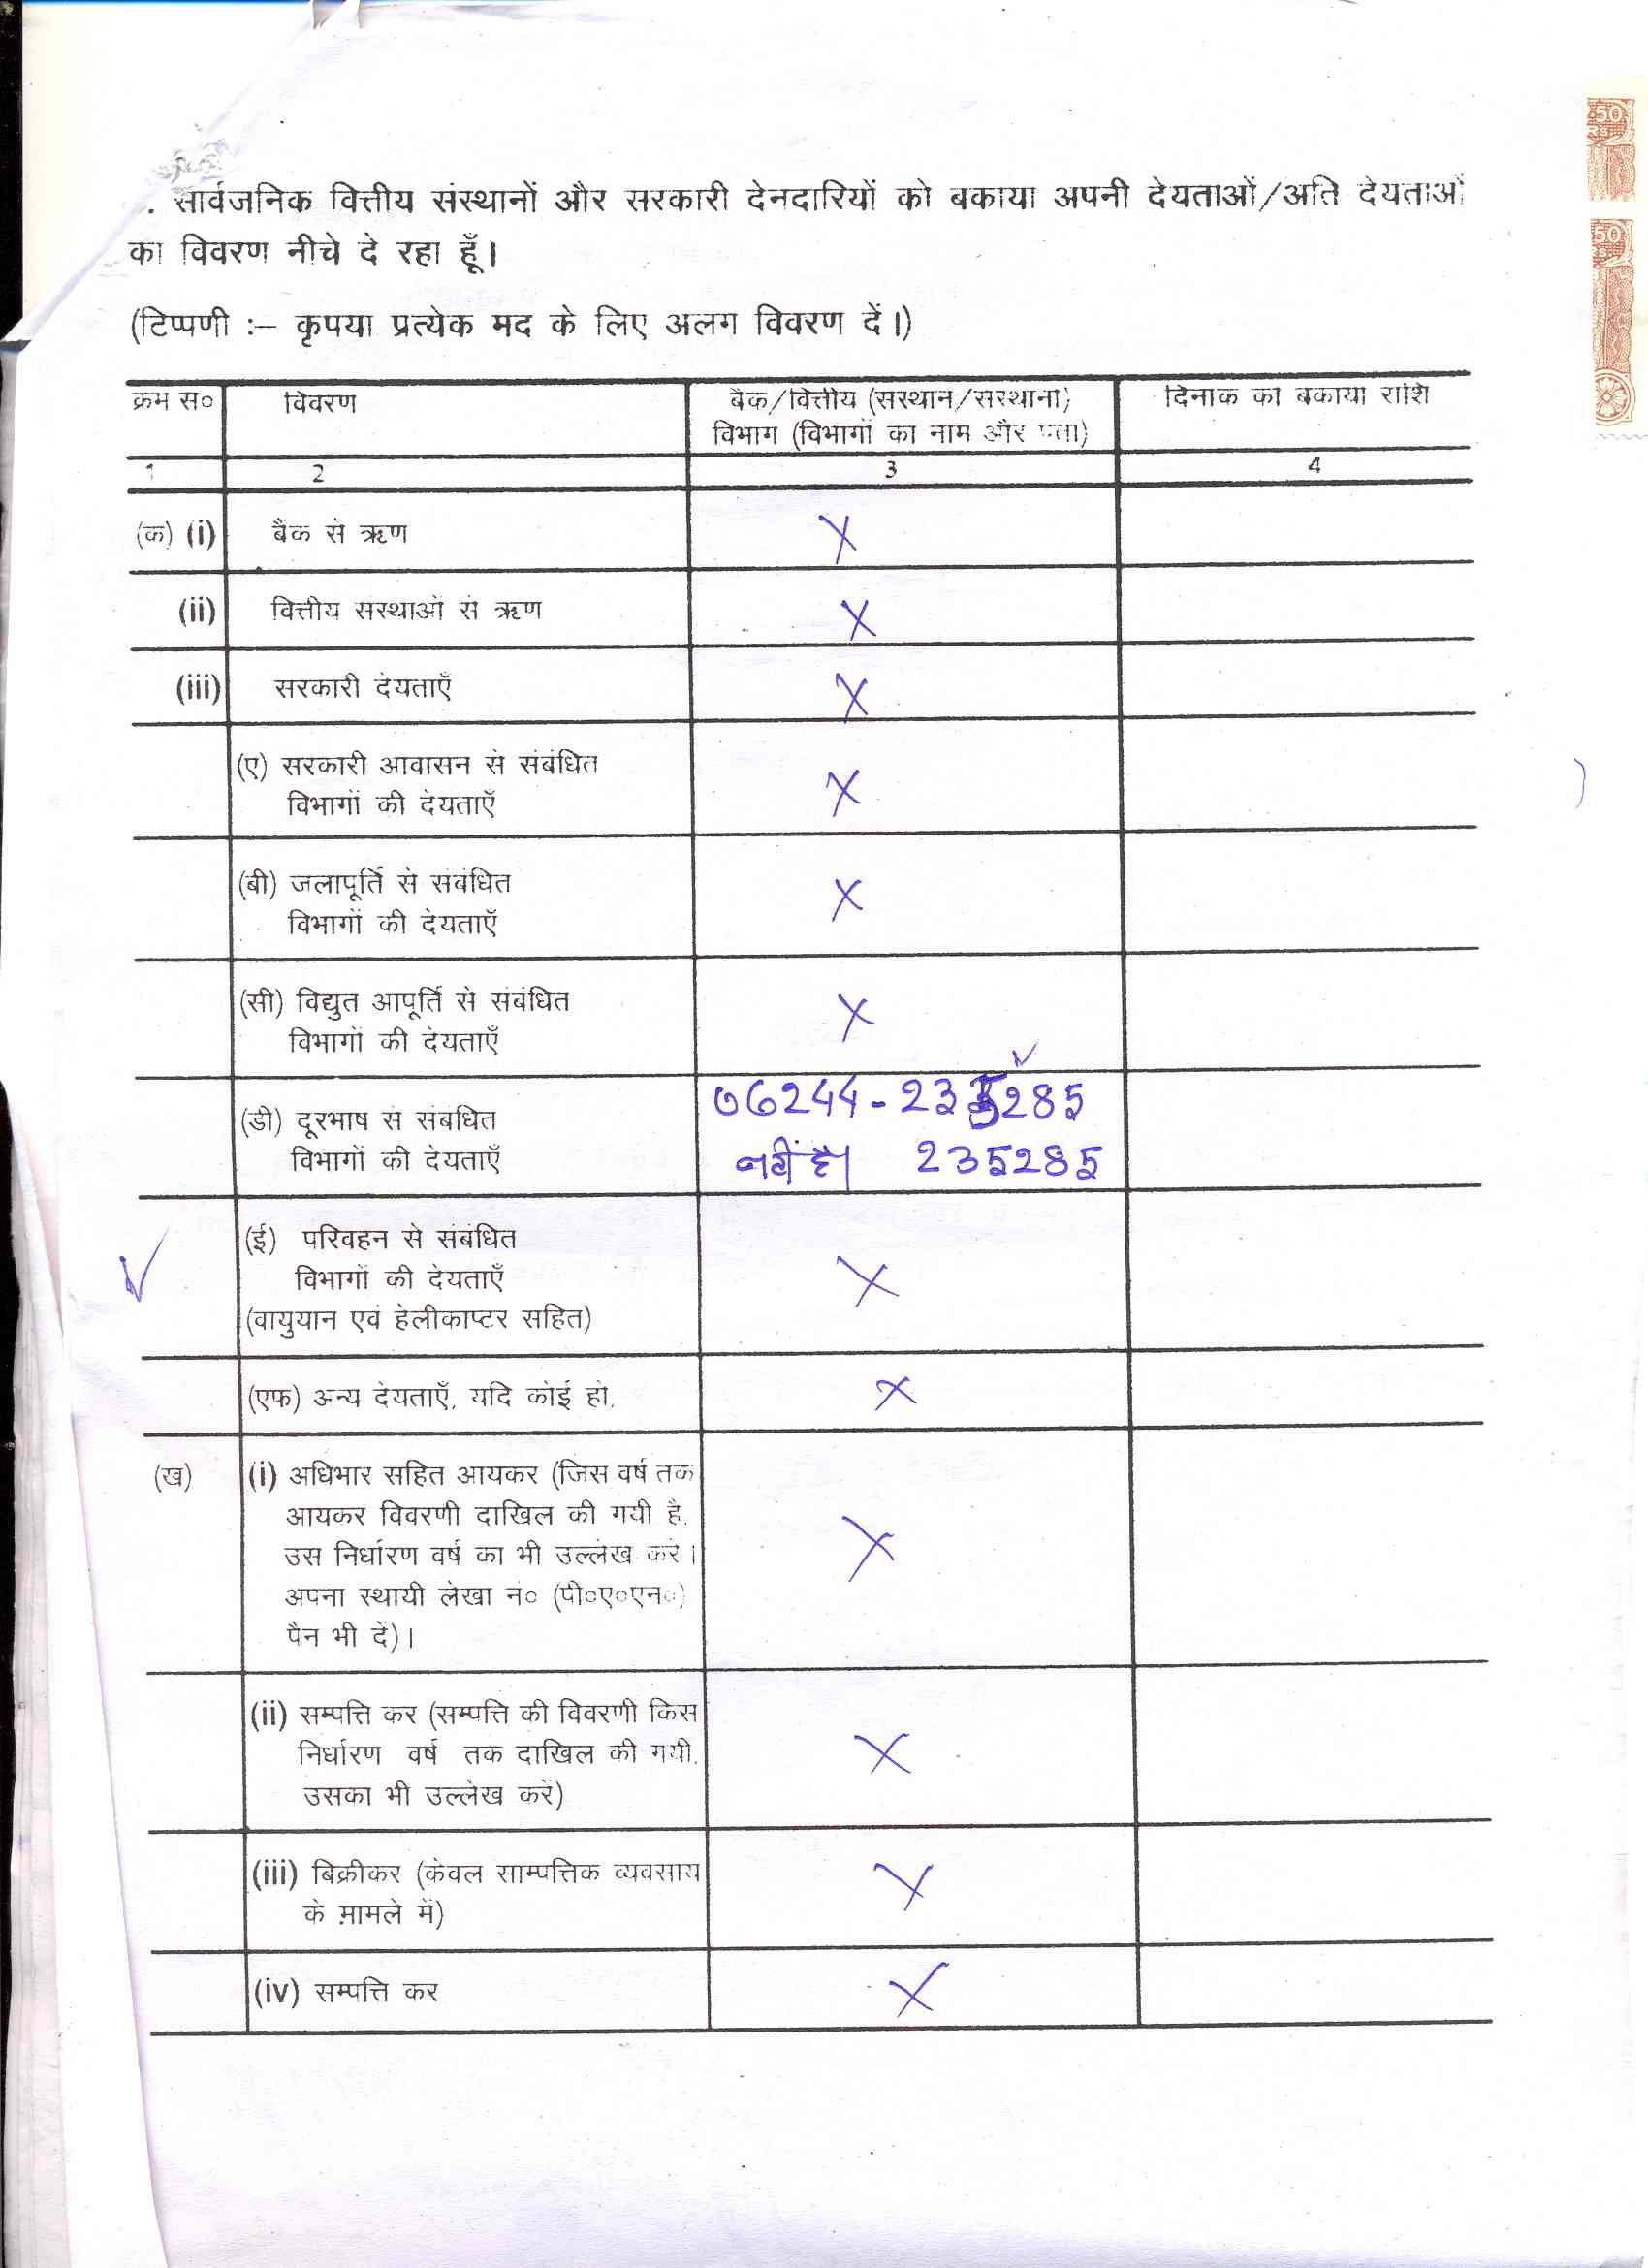 . सार्वजनिक वित्तीय संस्थानों और सरकारी देनदारियों को बकाया अपनी देयताओं/अति देयताओं
का विवरण नीचे दे रहा हूँ।
(टिप्पणी :– कृपया प्रत्येक मद के लिए अलग विवरण दें।)
क्रम स० विवरण बैंक/वित्तीय (संस्थान/संस्थानों) दिनांक को बकाया राशि
विभाग (विभागों का नाम और पता)
1 2 3 4
(क) (i) बैंक से ऋण X
(ii) वित्तीय संस्थाओं से ऋण X
(iii) सरकारी देयताएँ X
(ए) सरकारी आवासन से संबंधित
विभागों की देयताएँ X
(बी) जलापूर्ति से संबंधित
विभागों की देयताएँ X
(सी) विद्युत आपूर्ति से संबंधित
विभागों की देयताएँ X
(डी) दूरभाष से संबंधित 06244-235285
विभागों की देयताएँ नहीं है। 235285
(ई) परिवहन से संबंधित
विभागों की देयताएँ X
(वायुयान एवं हेलीकाप्टर सहित)
(एफ) अन्य देयताएँ, यदि कोई हो, X
(ख) (i) अधिभार सहित आयकर (जिस वर्ष तक
आयकर विवरणी दाखिल की गयी है,
उस निर्धारण वर्ष का भी उल्लेख करें। X
अपना स्थायी लेखा नं० (पी०ए०एन०)
पैन भी दें)।
(ii) सम्पत्ति कर (सम्पत्ति की विवरणी किस
निर्धारण वर्ष तक दाखिल की गयी, X
उसका भी उल्लेख करें)
(iii) बिक्रीकर (केवल साम्पत्तिक व्यवसाय X
के मामले में)
(iv) सम्पत्ति कर X
50
Rs
50